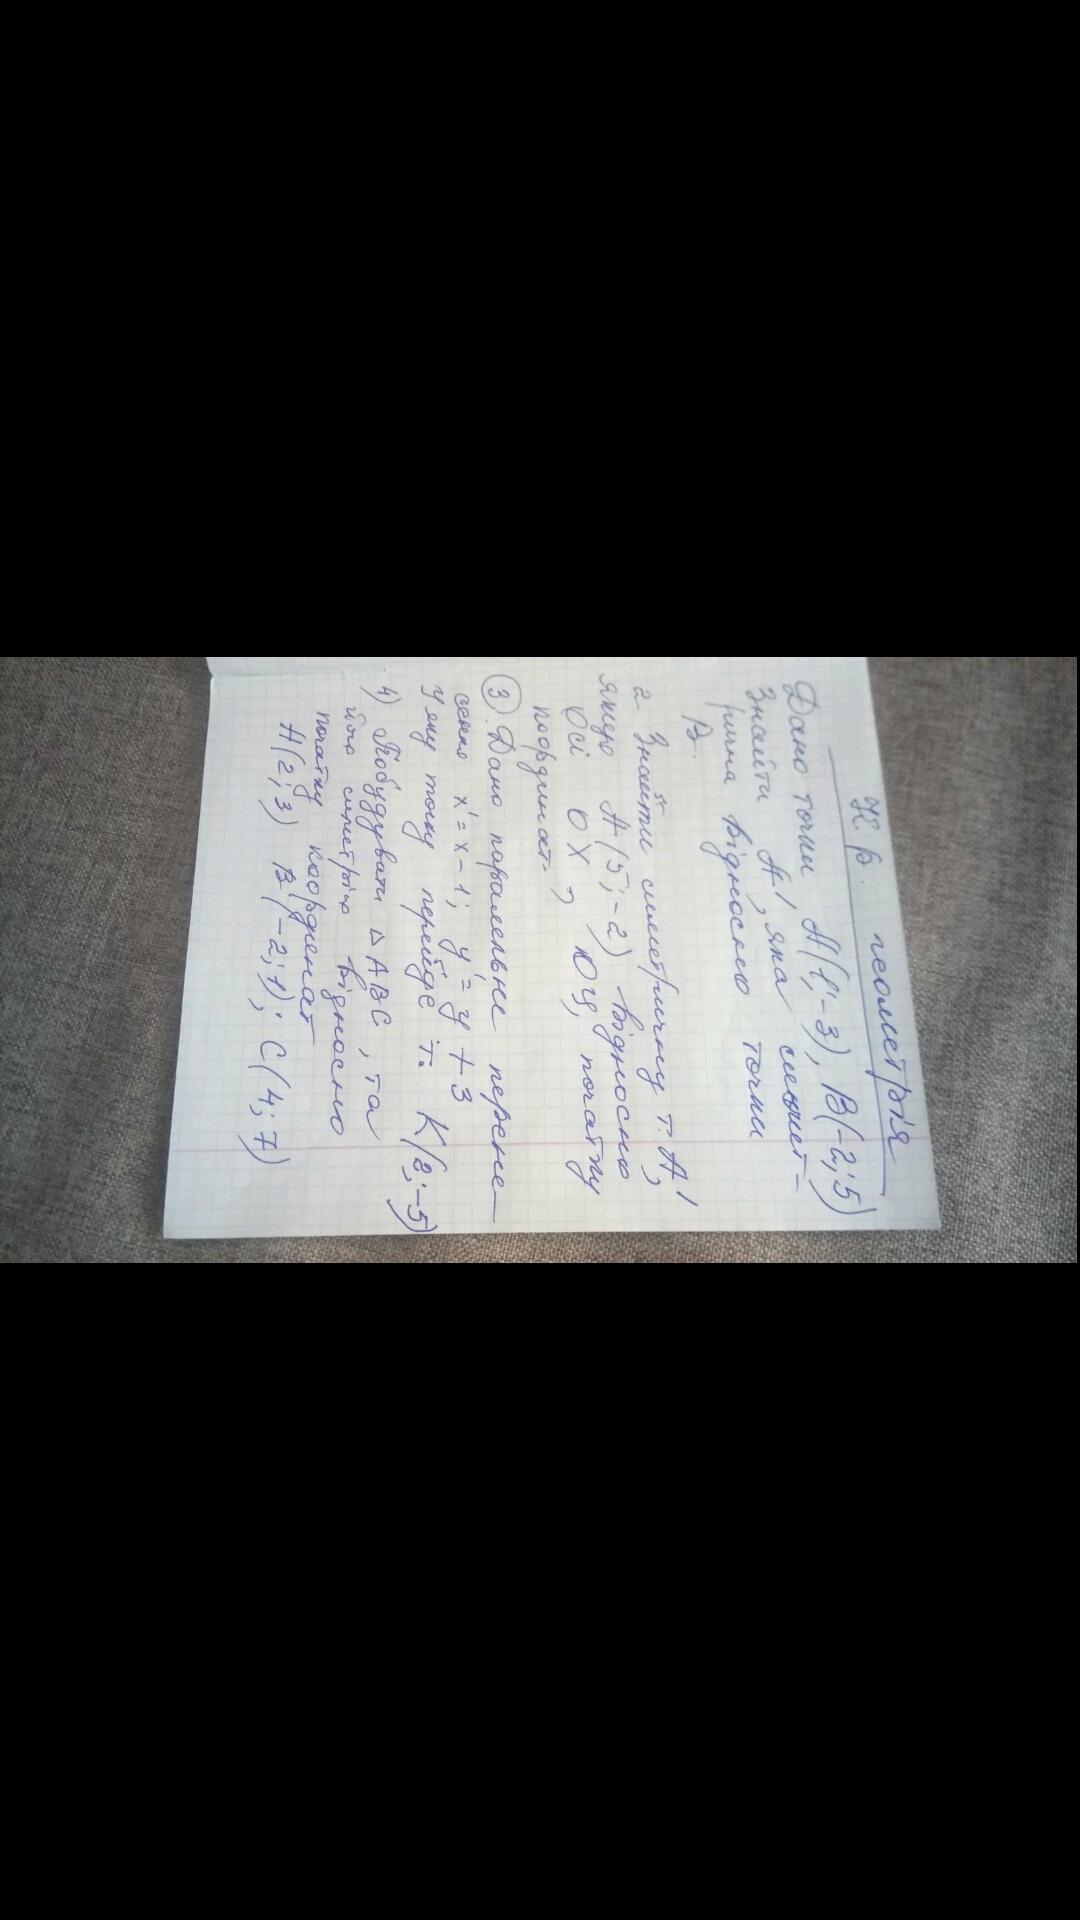 К. р. геометрія
Дано точки А(1; -3), В(-2; 5)
Знайти А', яка симет-
рична відносно точки
В.
2 Знайти симетричну т. А',
якщо А(5; -2) відносно
Осі ОХ, ОУ, початку
координат.
3. Дано паралельне перене-
сення x' = x - 1; y' = y + 3
у яку точку перейде т. К(2; -5)
4) Побудувати △ АВС, та
йому симетрію відносно
початку координат
А(2; 3) В(-2; 1); С(4; 7)